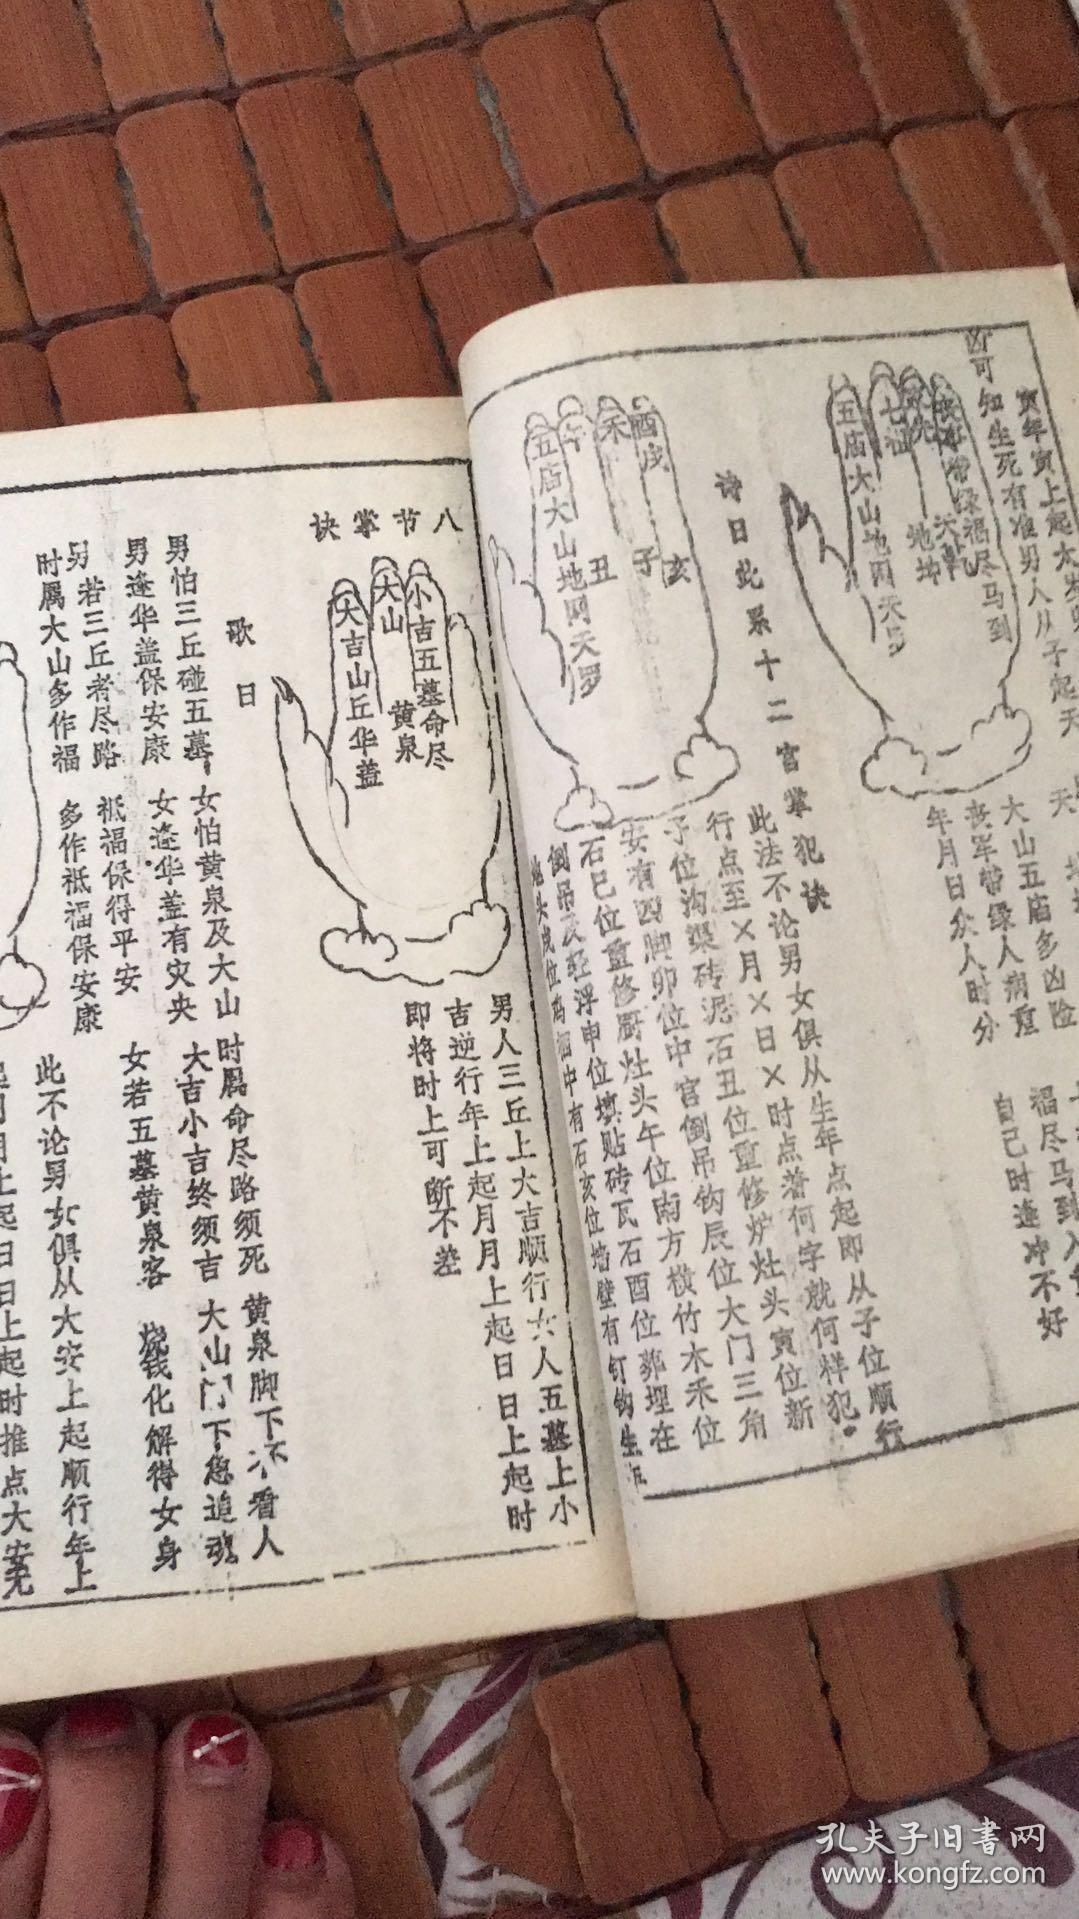 寅年寅上起太岁
凶可知生死有准男人从子起天
丧军带绿福尽马到
天
地坤
七
五庙大山地网天罗
大山五庙多凶险
丧军带绿人病重
年月日众人时分
福尽马到入
自己时逢冲不好
诗曰此系十二宫掌犯诀
酉戌
亥
禾
子
午
丑
五庙大山地网天罗
此法不论男女俱从生年点起即从子位顺行
行点至×月×日×时点著何字就何样犯。
子位沟渠砖泥石丑位重修炉灶头寅位新
安有四脚卯位中宫倒吊钩辰位大门三角
石巳位重修厨灶头午位南方横竹木禾位
倒吊及轻浮申位填贴砖瓦石酉位葬埋在
地头戌位
中有石亥位墙壁有钉钩生
八节掌诀
小吉五墓命尽
黄泉
大山
大吉山丘华盖
男人三丘上大吉顺行女人五墓上小
吉逆行年上起月月上起日日上起时
即将时上可断不差
歌曰
男怕三丘碰五墓
女怕黄泉及大山
时属命尽路须死
黄泉脚下不看人
男逢华盖保安康
女逢华盖有灾央
大吉小吉终须吉
大山门下急追魂。
男若三丘者尽路
祗福保得平安
女若五墓黄泉客
烧钱化解得女身
时属大山多作福
多作祗福保安康
此不论男女俱从大安上起顺行年上
起月月上起日日上起时推点大安无
孔夫子旧书网
www.kongfz.com